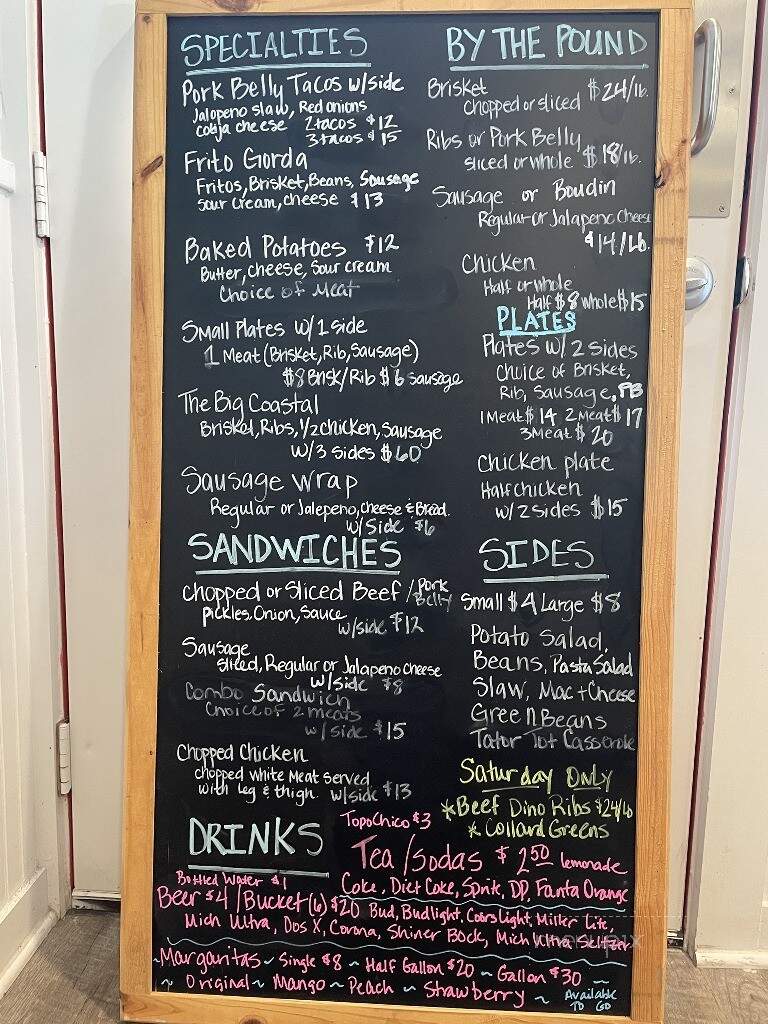 SPECIALTIES
Pork Belly Tacos w/side
Jalapeno slaw, Red onions
cotija cheese 2 tacos $12
3 tacos $15
Frito Gorda
Fritos, Brisket, Beans, Sausage
sour cream, cheese $13
Baked Potatoes $12
Butter, cheese, Sour cream
Choice of Meat
Small Plates w/ 1 side
1 Meat (Brisket, Rib, Sausage)
$8 Brisk/Rib $6 sausage
The Big Coastal
Brisket, Ribs, 1/2 chicken, Sausage
w/3 sides $60
Sausage Wrap
Regular or Jalepeno, cheese & Bread.
w/side $6
SANDWICHES
Chopped or Sliced Beef / Pork Belly
pickles, Onion, Sauce
w/side $12
Sausage
sliced, Regular or Jalapeno cheese
w/side $8
Combo Sandwich
Choice of 2 meats
w/side $15
Chopped Chicken
chopped white Meat served
with leg & thigh. w/side $13
BY THE POUND
Brisket $24/lb.
chopped or sliced
Ribs or Pork Belly
sliced or whole $18/lb.
Sausage or Boudin
Regular or Jalapeno Cheese
$14/lb.
Chicken
Half or whole
Half $8 whole $15
PLATES
Plates w/ 2 sides
Choice of Brisket,
Rib, Sausage, PB
1 Meat $14 2 Meat $17
3 Meat $20
Chicken plate
Half chicken
w/ 2 sides $15
SIDES
Small $4 Large $8
Potato Salad,
Beans, Pasta Salad
Slaw, Mac + Cheese
Green Beans
Tator Tot Casserole
Saturday Only
*Beef Dino Ribs $24/lb
* Collard Greens
DRINKS
Topo Chico $3
Tea/Sodas $2.50 lemonade
Coke, Diet Coke, Sprite, DP, Fanta Orange
Bottled Water $1
Beer $4 / Bucket (6) $20 Bud, Budlight, Coors Light, Miller Lite,
Mich Ultra, Dos X, Corona, Shiner Bock, Mich Ultra Seltzer
~Margaritas ~ Single $8 ~ Half Gallon $20 ~ Gallon $30 ~
~ Original ~ Mango ~ Peach ~ Strawberry ~ Available
TO GO